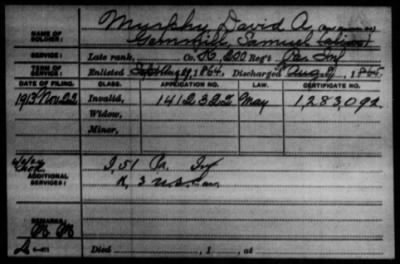 NAME OF SOLDIER:
Murphy David A.
Gemmill, Samuel (alias)
SERVICE:
Late rank, Co. K, 200 Reg't Pa. Inf
TERM OF SERVICE:
Enlisted , 1864, Discharged Aug , 1865
DATE OF FILING. CLASS. APPLICATION NO. LAW. CERTIFICATE NO.
1913 Nov. 22 Invalid, 1412322 May 1,283,092
Widow,
Minor,
ADDITIONAL SERVICES:
I, 51 Pa. Inf
K, 3 U.S.
REMARKS:
Died , 1 , at